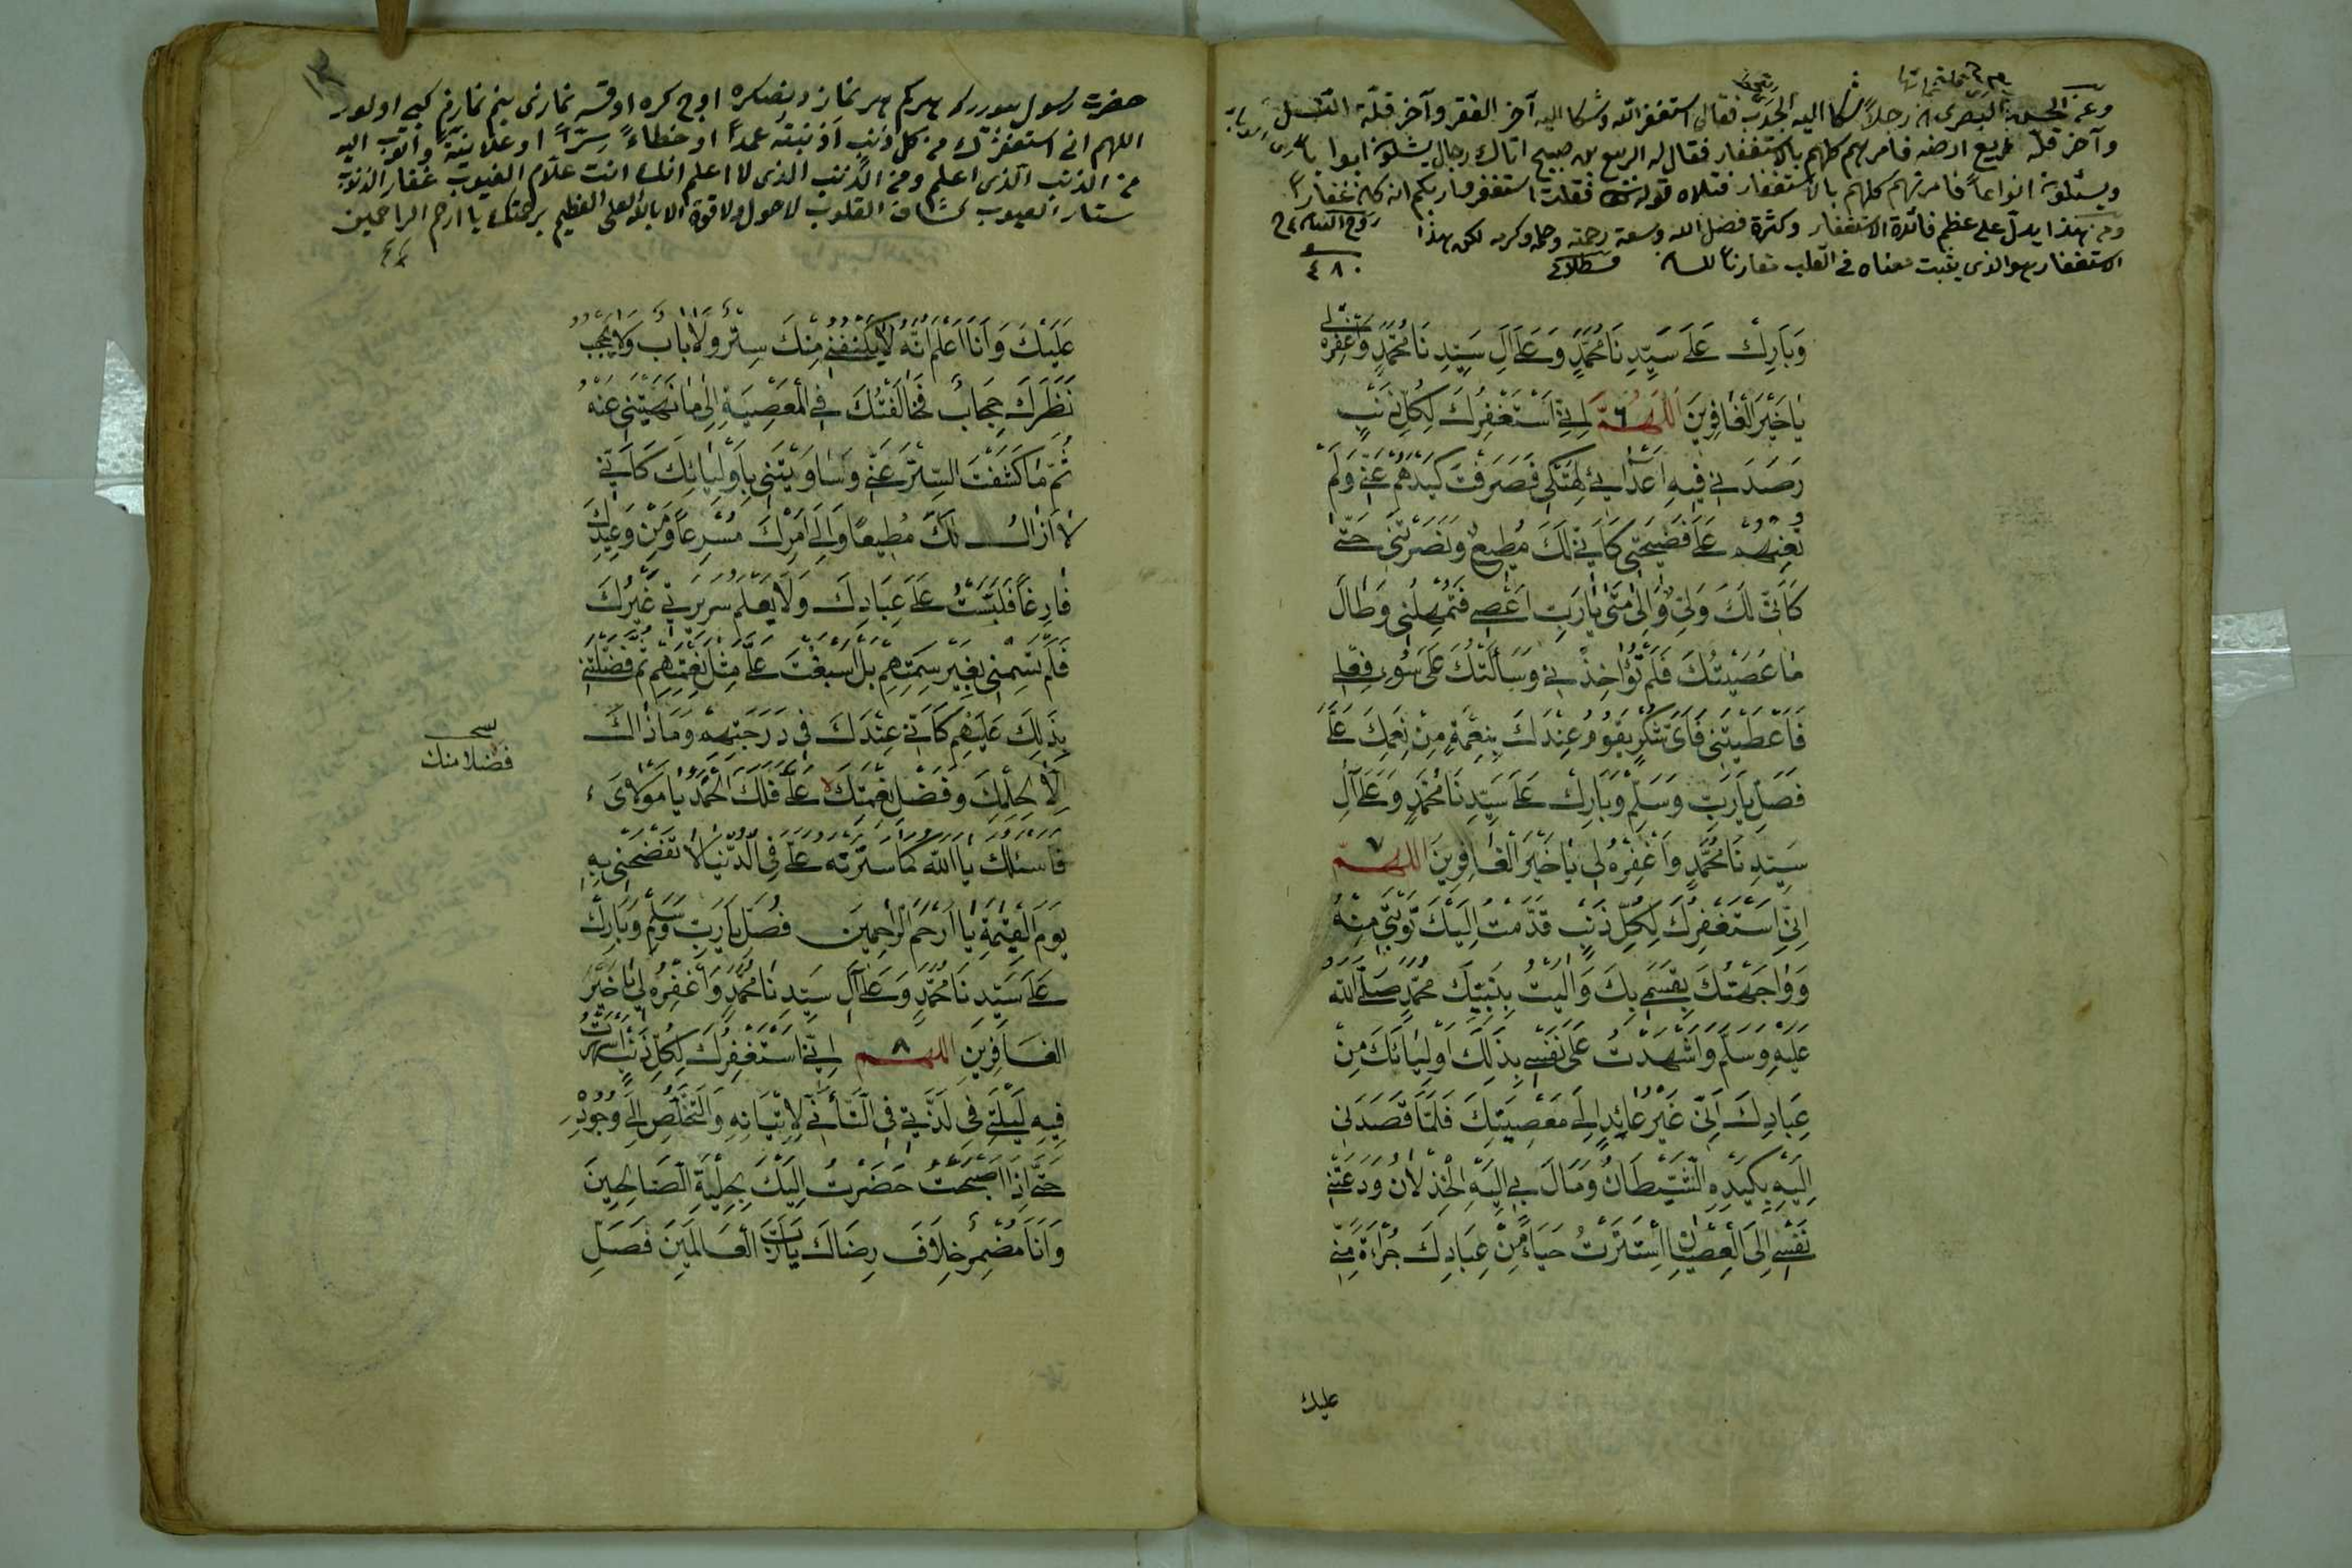 وعن الحسن البصرى ان رجلاً شكا اليه الجدب فقال استغفر الله وشكا اليه آخر الفقر وآخر قلّة النسل
وآخر قلّة ريع ارضه فامرهم كلهم بالاستغفار فقال له الربيع بن صبيح اتاك رجال يشكون ابوابا
ويسئلون انواعاً فامرتهم كلهم بالاستغفار فتلاه قوله فقلت استغفروا ربكم انه كان غفارا
ومن هذا يدلّ على عظم فائدة الاستغفار وكثرة فضل الله وسعة رحمته وحلمه وكرمه لكن هذا
الاستغفار هو الذى يثبت معناه فى القلب مقارناً للسان
٤٨٠
وَبَارِكْ عَلَى سَيِّدِنَا مُحَمَّدٍ وَعَلَى آلِ سَيِّدِنَا مُحَمَّدٍ وَاغْفِرْهُ لِى
يَا خَيْرَ الْغَافِرِينَ اَللّٰهُمَّ ٦ اِنِّى اَسْتَغْفِرُكَ لِكُلِّ ذَنْبٍ
رَصَدَنِى فِيهِ اَعْدَائِى لِهَتْكِى فَصَرَفْتَ كَيْدَهُمْ عَنِّى وَلَمْ
تُعِنْهُمْ عَلَى فَضِيحَتِى كَاَنِّى لَكَ مُطِيعٌ وَنَصَرْتَنِى حَتّٰى
كَاَنِّى لَكَ وَلِىٌّ وَاِلٰى مَتٰى يَارَبِّ اَعْصِى فَتُمْهِلُنِى وَطَالَ
مَا عَصَيْتُكَ فَلَمْ تُؤَاخِذْنِى وَسَأَلْتُكَ عَلَى سُوءِ فِعْلِى
فَاَعْطَيْتَنِى فَاَىُّ شُكْرٍ يَقُومُ عِنْدَكَ بِنِعْمَةٍ مِنْ نِعَمِكَ عَلَىَّ
فَصَلِّ يَارَبِّ وَسَلِّمْ وَبَارِكْ عَلَى سَيِّدِنَا مُحَمَّدٍ وَعَلَى آلِ
سَيِّدِنَا مُحَمَّدٍ وَاغْفِرْهُ لِى يَا خَيْرَ الْغَافِرِينَ اَللّٰهُمَّ ٧
اِنِّى اَسْتَغْفِرُكَ لِكُلِّ ذَنْبٍ قَدَّمْتُ اِلَيْكَ تَوْبَتِى مِنْهُ
وَوَاجَهْتُكَ بِقَسَمِى بِكَ وَآلَيْتُ بِنَبِيِّكَ مُحَمَّدٍ صَلَّى اللّٰهُ
عَلَيْهِ وَسَلَّمَ وَاَشْهَدْتُ عَلَى نَفْسِى بِذٰلِكَ اَوْلِيَائَكَ مِنْ
عِبَادِكَ اَنِّى غَيْرُ عَائِدٍ اِلَى مَعْصِيَتِكَ فَلَمَّا قَصَدَنِى
اِلَيْهِ بِكَيْدِهِ الشَّيْطَانُ وَمَالَ بِى اِلَيْهِ الْخِذْلَانُ وَدَعَتْنِى
نَفْسِى اِلَى الْعِصْيَانِ اِسْتَتَرْتُ حَيَاءً مِنْ عِبَادِكَ جُرْاَةً مِنِّى
عليك
حضرت رسول بيوررلر هر كم هر نماز دنصكره اوچ كره اوقسه نمازى بنم نمازم كبى اولور
اللهم انى استغفرك من كل ذنب اذنبته عمداً او خطاءً سرّاً او علانيةً واتوب اليه
من الذنب الذى اعلم ومن الذنب الذى لا اعلم انك انت علّام الغيوب غفار الذنوب
ستار العيوب كشاف القلوب لا حول ولا قوة الا بالله العلى العظيم برحمتك يا ارحم الراحمين
عَلَيْكَ وَاَنَا اَعْلَمُ اَنَّهُ لَا يُكْنِفُنِى مِنْكَ سِتْرٌ وَلَا بَابٌ وَلَا يَحْجُبُ
نَظَرَكَ حِجَابٌ فَخَالَفْتُكَ فِى الْمَعْصِيَةِ اِلٰى مَا نَهَيْتَنِى عَنْهُ
ثُمَّ مَا كَشَفْتَ السِّتْرَ عَنِّى وَسَاوَيْتَنِى بِاَوْلِيَائِكَ كَاَنِّى
لَا اَزَالُ لَكَ مُطِيعًا وَاِلَى اَمْرِكَ مُسْرِعًا وَمِنْ وَعِيدِكَ
فَارِغًا فَلَبَّسْتُ عَلَى عِبَادِكَ وَلَا يَعْلَمُ سَرِيرَتِى غَيْرُكَ
فَلَمْ تَسِمْنِى بِغَيْرِ سِمَتِهِمْ بَلْ اَسْبَغْتَ عَلَىَّ مِثْلَ نِعَمِهِمْ ثُمَّ فَضَّلْتَنِى
بِذٰلِكَ عَلَيْهِمْ كَاَنِّى عِنْدَكَ فِى دَرَجَتِهِمْ وَمَا ذَاكَ
اِلَّا لِحِلْمِكَ وَفَضْلِ نِعْمَتِكَ عَلَىَّ فَلَكَ الْحَمْدُ يَا مَوْلَاىَ
فضلا منك
فَاَسْئَلُكَ يَا اَللّٰهُ كَمَا سَتَرْتَهُ عَلَىَّ فِى الدُّنْيَا لَا تَفْضَحْنِى بِهِ
يَوْمَ الْقِيٰمَةِ يَا اَرْحَمَ الرَّاحِمِينَ فَصَلِّ يَارَبِّ وَسَلِّمْ وَبَارِكْ
عَلَى سَيِّدِنَا مُحَمَّدٍ وَعَلَى آلِ سَيِّدِنَا مُحَمَّدٍ وَاغْفِرْهُ لِى يَا خَيْرَ
الْغَافِرِينَ اَللّٰهُمَّ ٨ اِنِّى اَسْتَغْفِرُكَ لِكُلِّ ذَنْبٍ اَسْهَرْتُ
فِيهِ لَيْلَتِى فِى لَذَّتِى فِى التَّأَنِّى لِاِتْيَانِهِ وَالتَّخَلُّصِ اِلَى وُجُودِهِ
حَتّٰى اِذَا اَصْبَحْتُ حَضَرْتُ اِلَيْكَ بِحِلْيَةِ الصَّالِحِينَ
وَاَنَا مُضْمِرٌ خِلَافَ رِضَاكَ يَارَبَّ الْعَالَمِينَ فَصَلِّ